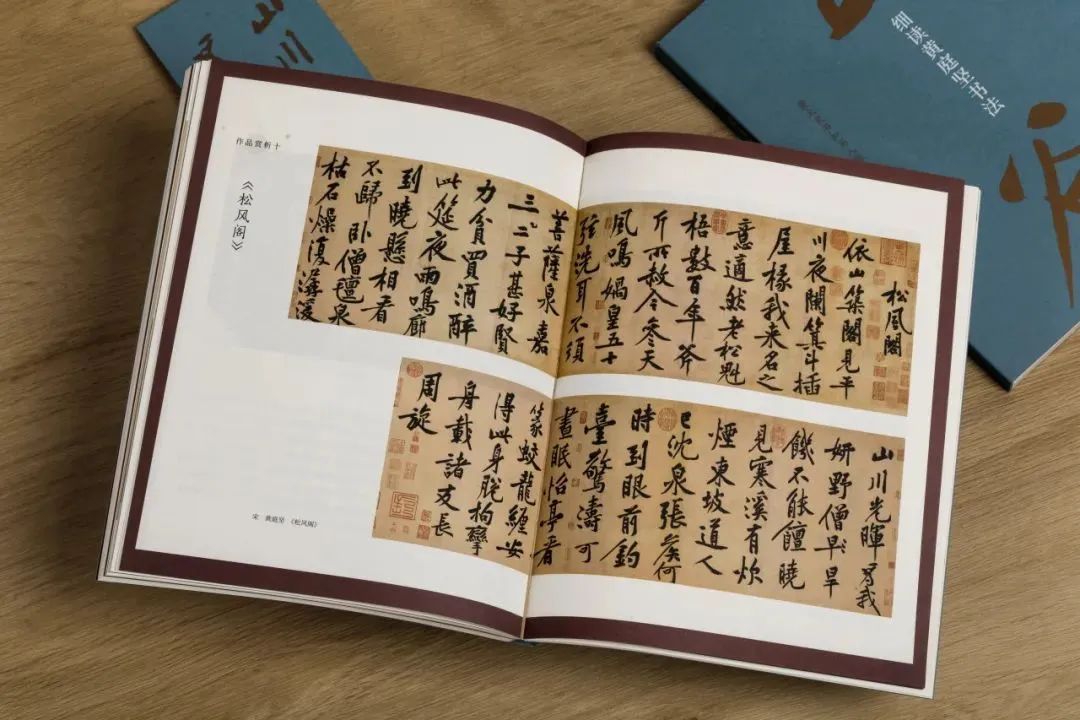 作品赏析十
《松风阁》
松風閣
依山築閣見平
川夜闌箕斗插
屋椽我來名之
意適然老松魁
梧數百年斧
斤所赦今參天
風鳴媧皇五十
弦洗耳不須
菩薩泉嘉
三二子甚好賢
力貧買酒醉
此筵夜雨鳴廊
到曉懸相看
不歸臥僧氈泉
枯石燥復潺湲
山川光暉為我
妍野僧早旱
饑不能饘曉
見寒溪有炊
煙東坡道人
已沈泉張侯何
時到眼前釣
臺驚濤可
晝眠怡亭看
篆蛟龍纏安
得此身脫拘攣
舟載諸友長
周旋
宋 黄庭坚 《松风阁》
细读黄庭坚书法
山川